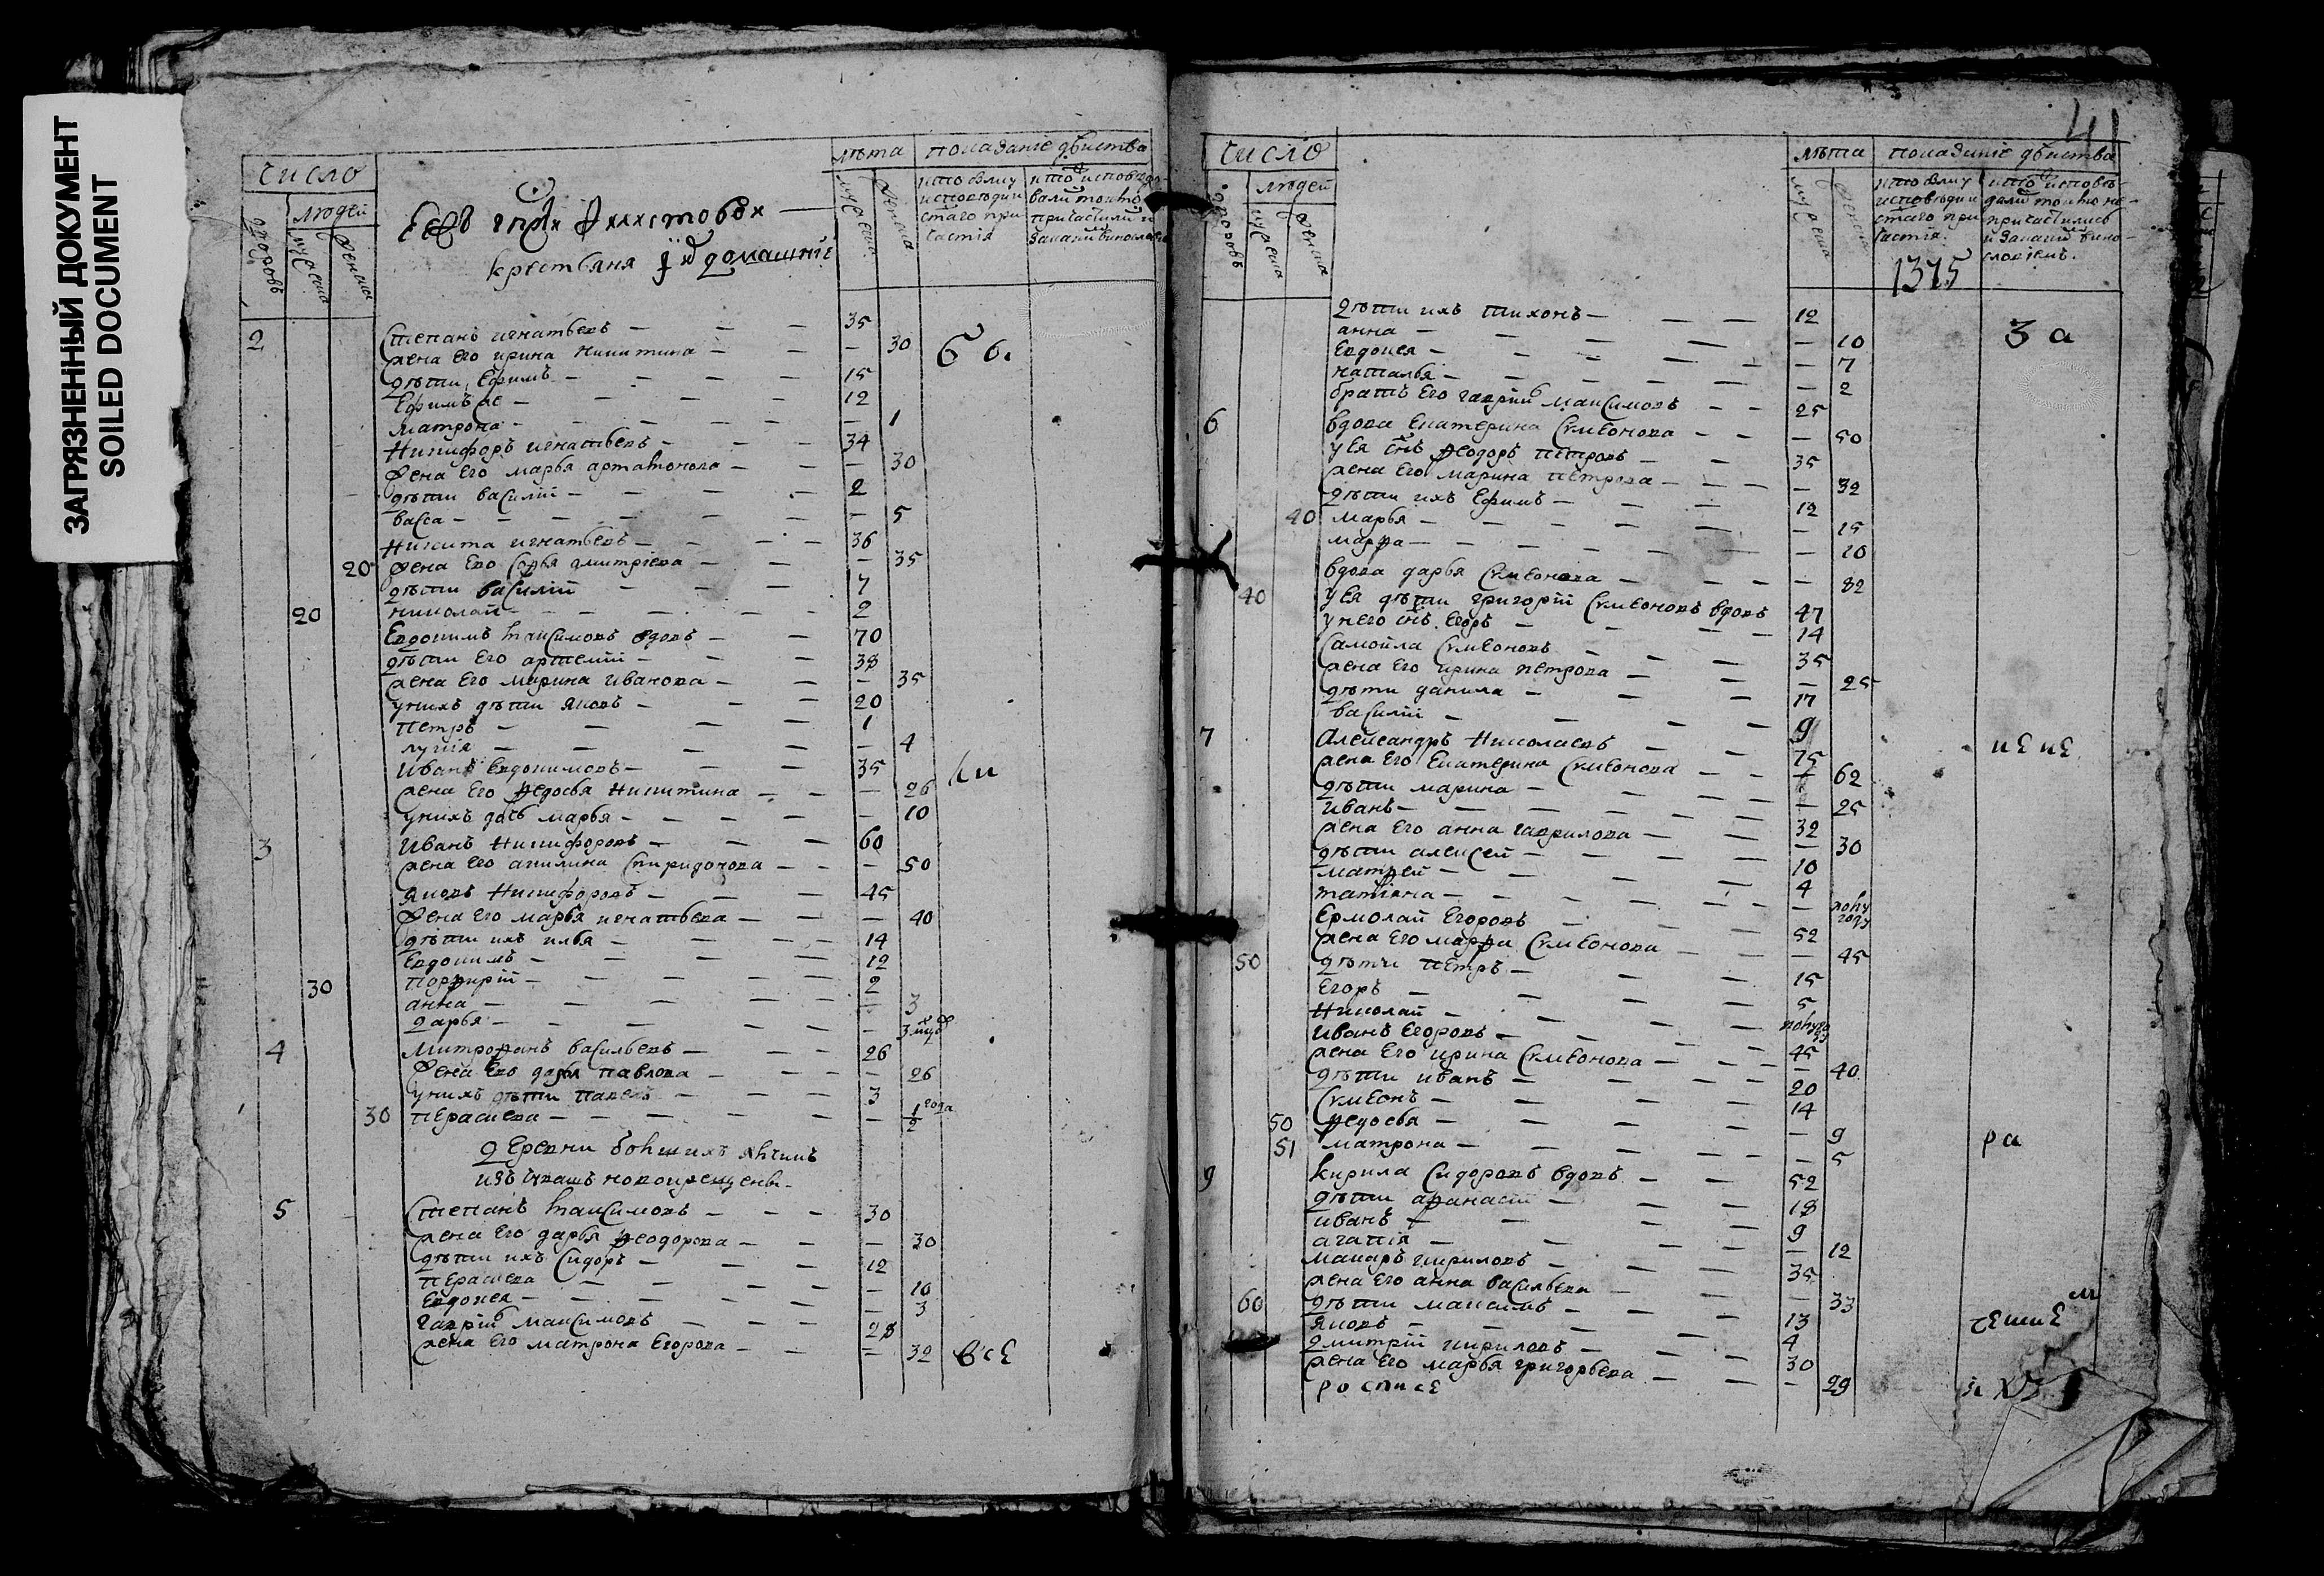 ЗАГРЯЗНЕННЫЙ ДОКУМЕНТ
SOILED DOCUMENT
число
людей
дворовъ
мужеска
женска
крестьяня и домашние
лѣта
мужеска
женска
показаніе дѣиства
2 Степанъ игнатьевъ — 35
жена его ирина никитина — 30
дѣти Ефимъ — 15
Ефимъ же — 12
матрона — 1
Никифоръ игнатьевъ — 34
жена его марья артамонова — 30
дѣти василіи — 2
васса — 5
Никита игнатьевъ — 36
20 жена его софья дмитріева — 35
дѣти василіи — 7
20 николаи — 2
Евдокимъ максимовъ вдовъ — 70
дѣти его артемии — 38
жена его марина иванова — 35
унихъ дѣти яковъ — 20
петръ — 1
лукія — 4
иванъ евдокимовъ — 35
жена его федосья никитина — 26
унихъ дочь марья — 10
3 иванъ никифоровъ — 60
жена его акилина спиридонова — 50
яковъ никифоровъ — 45
жена его марья игнатьева — 40
дѣти ихъ илья — 14
евдокимъ — 12
30 порфирій — 2
анна — 3
дарья — 3
4 митрофанъ васильевъ — 26
жена его дарья павлова — 26
унихъ дѣти павелъ — 3
30 перасцева — 1/2 года
деревни большихъ
изъ чювашъ новокрещены
5 Степанъ максимовъ — 30
жена его дарья феодорова — 30
дѣти ихъ Сидоръ — 12
перасцева — 10
евдокея — 3
гаврил максимовъ — 28
жена его матрона егорова — 32
все
41
число
людей
дворовъ
мужеска
женска
лѣта
мужеска
женска
показаніе дѣиства
1375
дѣти ихъ тихонъ — 12
анна — 10
Евдокея — 7
наталья — 2
братъ его гаврил максимовъ — 25
6 вдова екатерина симеонова — 50
уея снъ феодоръ петровъ — 35
жена его марина петрова — 32
дѣти ихъ Ефимъ — 12
40 марья — 15
марфа — 10
вдова дарья симеонова — 82
40 уея дѣти григоріи симеоновъ вдовъ 47
унего снъ егоръ — 14
Самоила симеоновъ — 35
жена его ирина петрова — 25
дѣти данила — 17
василіи — 9
7 Александръ николаевъ — 75
жена его екатерина симеонова — 62
дѣти марина — 25
иванъ — 32
жена его анна гаврилова — 30
дѣти алексеи — 10
матфеи — 4
татіяна — полу году
Ермолаи егоровъ — 52
жена его марфа симеонова — 45
50 дѣти петръ — 15
Егоръ — 5
Николаи — полу году
иванъ егоровъ — 45
жена его ирина симеонова — 40
дѣти иванъ — 20
Симеонъ — 14
50 федосья — 9
51 матрона — 5
9 кирила Сидоровъ вдовъ — 52
дѣти афанасіи — 18
иванъ — 9
агапія — 12
макаръ кириловъ — 35
жена его анна васильева — 33
60 дѣти максимъ — 13
яковъ — 4
дмитріи кириловъ — 30
жена его марья григорьева — 29
росписе